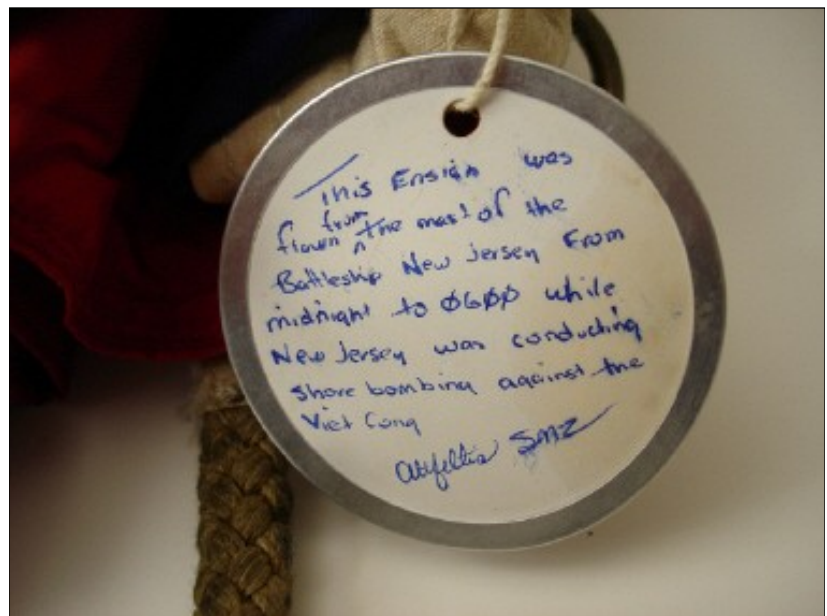 This Ensign was
flown from the mast of the
Battleship New Jersey From
midnight to 0600 while
New Jersey was conducting
shore bombing against the
Viet Cong
SM2